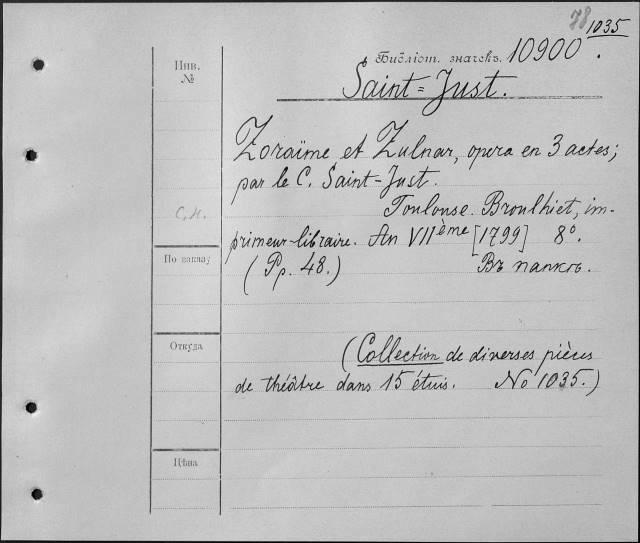 78 1035
Библіот. значокъ. 10900.
Инв.
№
Saint=Just.
Zoraïme et Zulnar, opera en 3 actes;
par le C. Saint=Just.
С.Н.
Toulouse. Broulhiet, im-
primeur-libraire. An VII ème [1799] 8°.
По заказу
(Pp. 48.) Въ папкѣ.
Откуда
(Collection de diverses pièces
de théâtre dans 15 étuis. No 1035.)
Цѣна